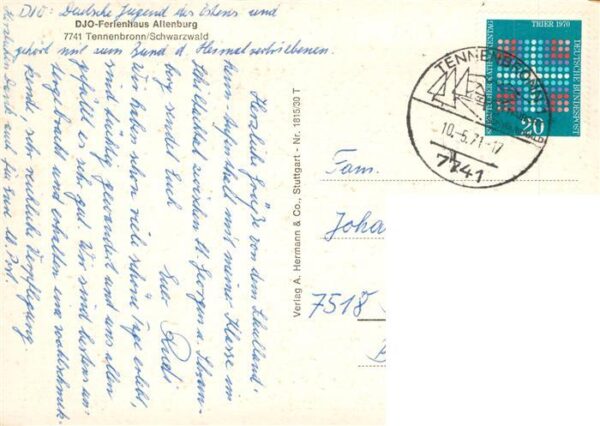 DJO: Deutsche Jugend des Ostens und
DJO-Ferienhaus Altenburg
7741 Tennenbronn/Schwarzwald
gehört mit zum Bund d. Heimatvertriebenen.
Herzliche Grüße von dem Schulland-
heim Aufenthalt mit meiner Klasse im
Schiltachtal zwischen St. Georgen u. Schram-
berg sendet Euch
Euer Rudi
Wir haben schon viele schöne Tage erlebt,
sind tüchtig gewandert und uns allen
gefällt es sehr gut. Wir sind bestens un-
tergebracht und erhalten eine wohlschmek-
kende, sehr reichliche Verpflegung.
Herzlichen Dank auch für Eure
Verlag A. Hermann & Co., Stuttgart - Nr. 1815/30 T
TRIER 1970
DEUTSCHE BUNDESPOST
20
TENNENBRONN
10.-5.71-17
7741
Fam.
Joha
7518